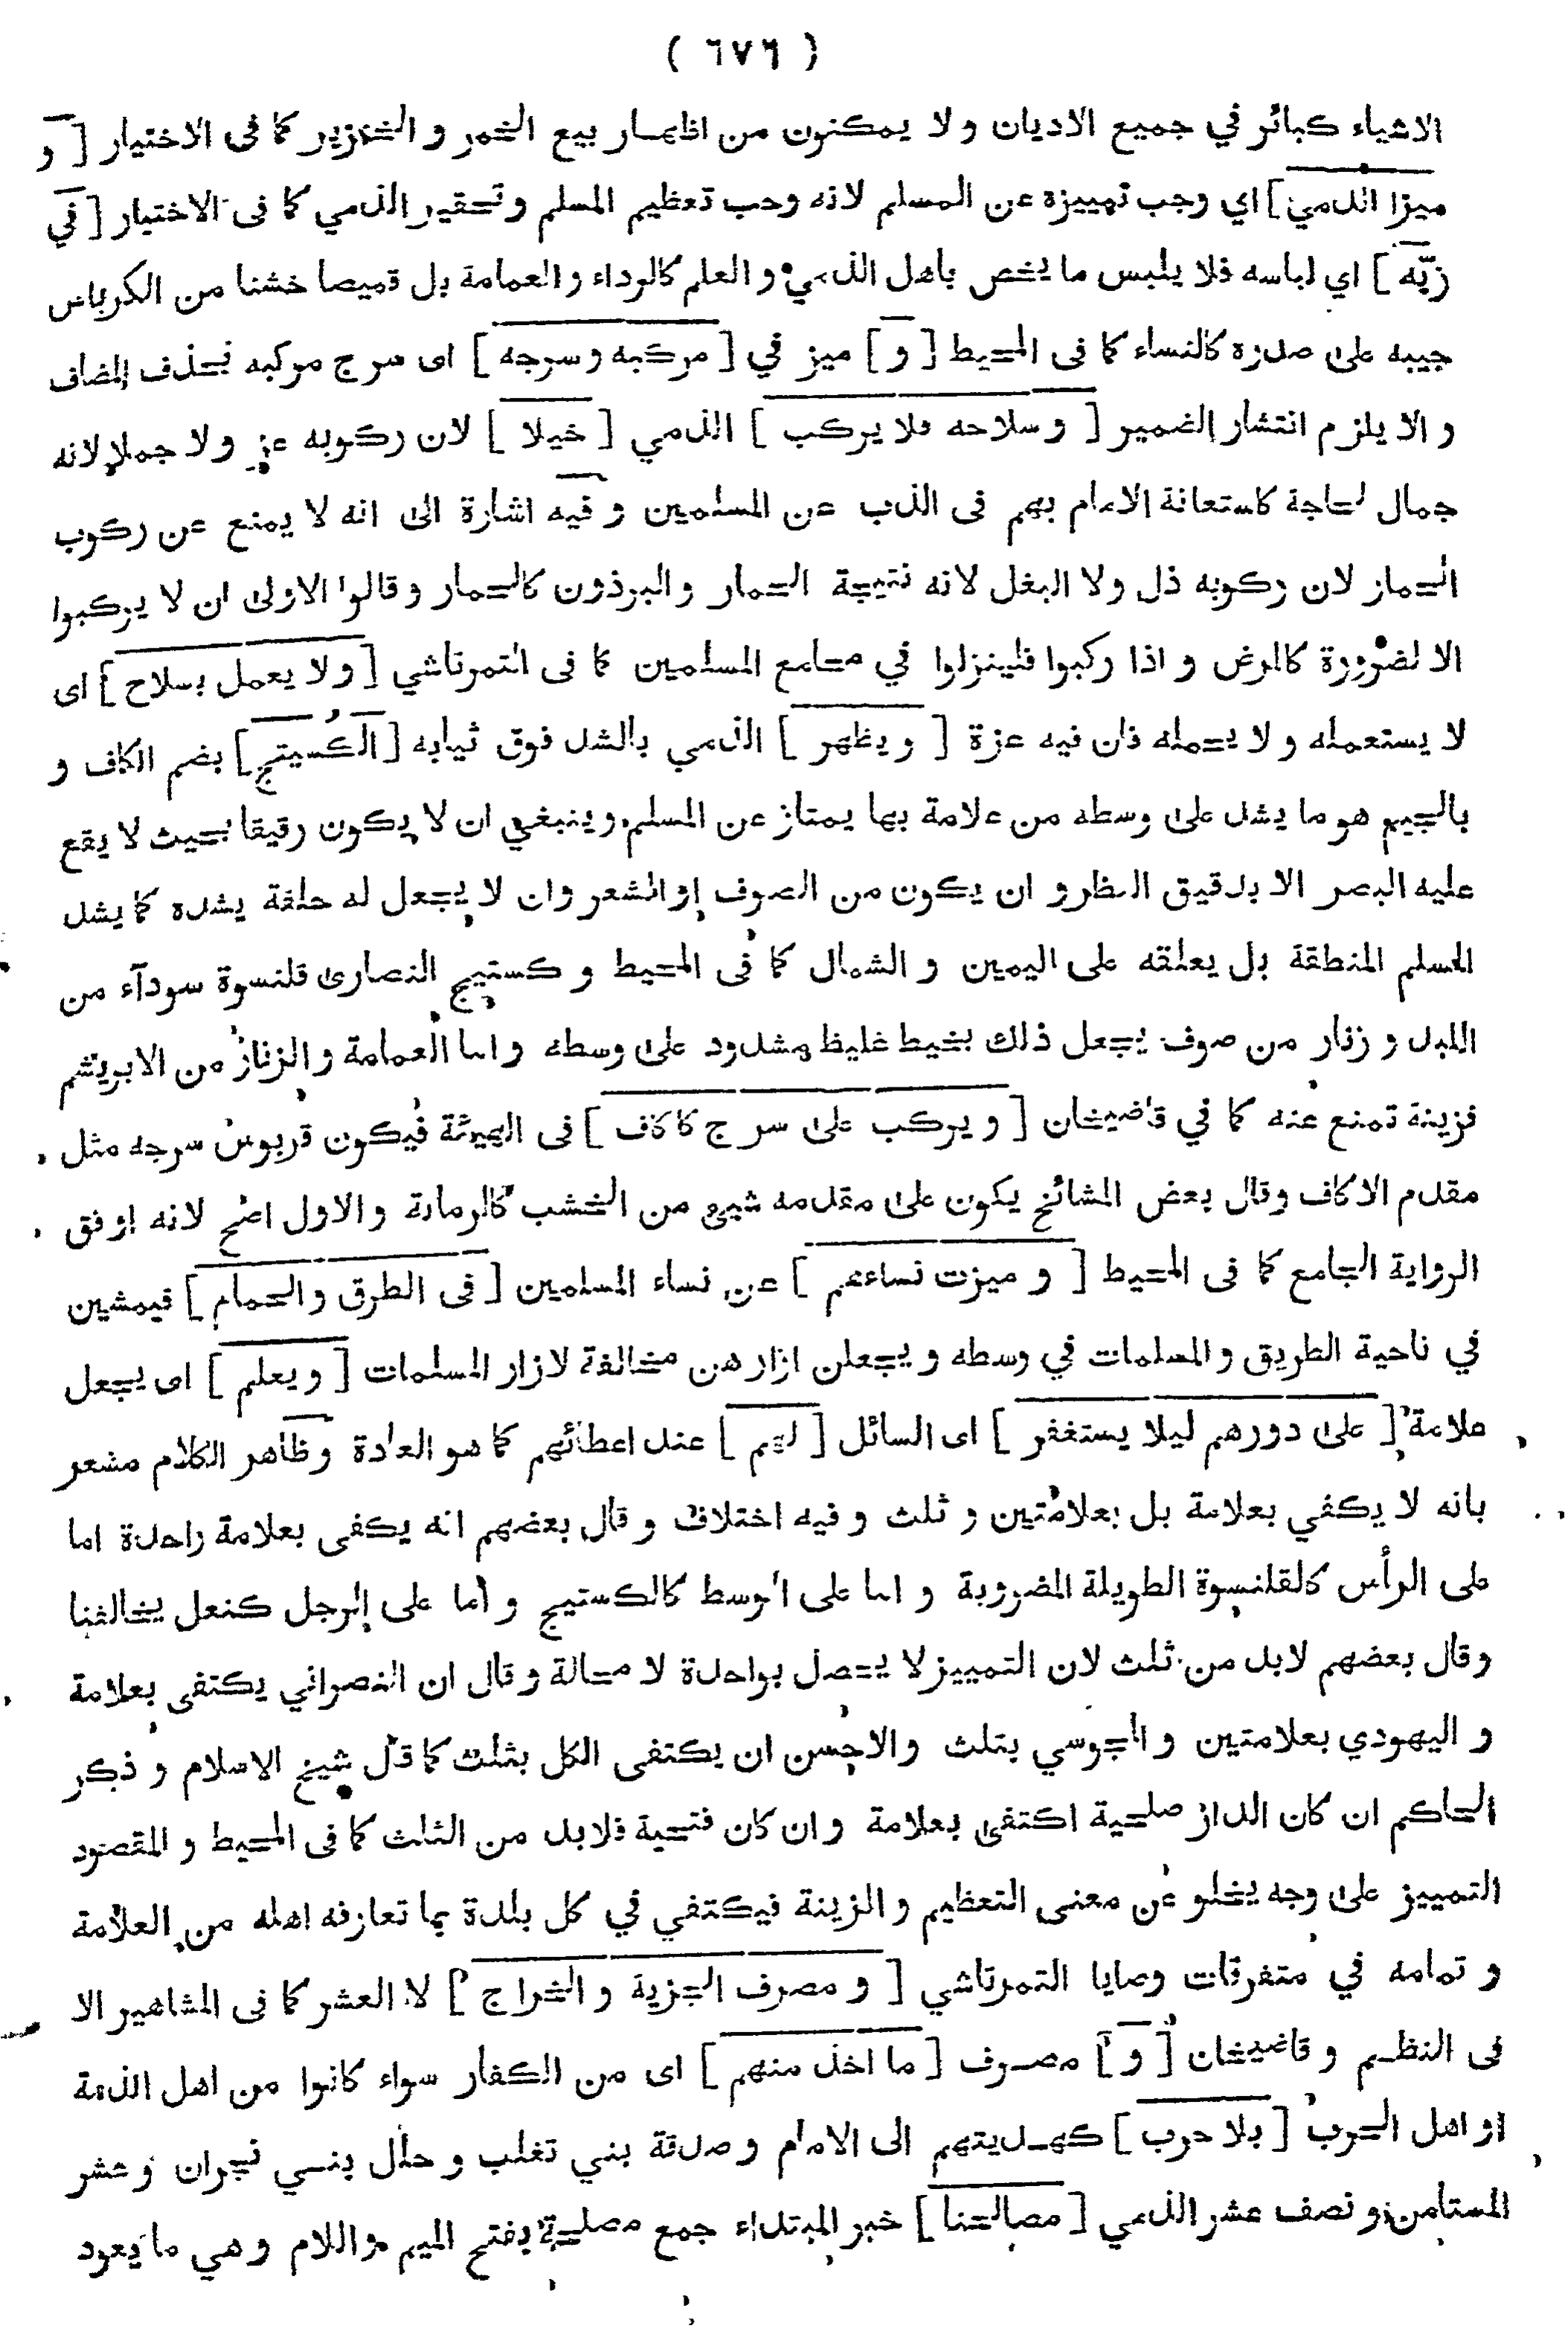 ( ٦٧٦ )
الاشياء كبائر في جميع الاديان و لا يمكنون من اظهار بيع الخمر و الخنزير كما فى الاختيار [ و
ميزا الذمي ] اي وجب تمييزه عن المسلم لانه وجب تعظيم المسلم و تحقير الذمي كما فى الاختيار [ في
زيّه ] اي لباسه فلا يلبس ما يخص باهل و العلم كالرداء و العمامة بل قميصا خشنا من الكرباس
جيبه على صدره كالنساء كما فى المحيط [ و ] ميز في [ مركبه و سرجه ] اى سرج مركبه بحذف المضاف
و الا يلزم انتشار الضمير [ و سلاحه فلا يركب ] الذمي [ خيلا ] لان ركوبه عز و لا جملا لانه
جمال لحاجة كاستعانة الامام بهم فى الذب عن المسلمين و فيه اشارة الى انه لا يمنع عن ركوب
الحمار لان ركوبه ذل و لا البغل لانه نتيجة الحمار و البرذون كالحمار و قالوا الاولى ان لا يركبوا
الا لضرورة كالمرض و اذا ركبوا فلينزلوا في مجامع المسلمين كما فى التمرتاشي [ و لا يعمل بسلاح ] اى
لا يستعمله و لا يحمله فان فيه عزة [ و يظهر ] الذمي بالشد فوق ثيابه [ الكُستيج ] بضم الكاف و
بالجيم هو ما يشد على وسطه من علامة بها يمتاز عن المسلم و ينبغي ان لا يكون رقيقا بحيث لا يقع
عليه البصر الا بدقيق النظر و ان يكون من الصوف او الشعر و ان لا يجعل له حلقة يشده كما يشد
المسلم المنطقة بل يعلقه على اليمين و الشمال كما فى المحيط و كستيج النصارى قلنسوة سوداء من
اللبد و زنار من صوف يجعل ذلك بخيط غليظ مشدود على وسطه و اما العمامة و الزنار من الابريشم
فزينة تمنع عنه كما في قاضيخان [ و يركب على سرج كاكاف ] فى الهيئة فيكون قربوس سرجه مثل
مقدم الاكاف و قال بعض المشائخ يكون على مقدمه شيئ من الخشب كالرمانة و الاول اصح لانه اوفق
الرواية الجامع كما فى المحيط [ و ميزت نساءهم ] عن نساء المسلمين [ فى الطرق و الحمام ] فيمشين
في ناحية الطريق و المسلمات في وسطه و يجعلن ازارهن مخالفة لازار المسلمات [ و يعلم ] اى يجعل
علامة [ على دورهم ليلا يستغفر ] اى السائل [ لهم ] عند اعطائهم كما هو العادة و ظاهر الكلام مشعر
بانه لا يكفي بعلامة بل بعلامتين و ثلث و فيه اختلاف و قال بعضهم انه يكفى بعلامة واحدة اما
على الرأس كالقلنسوة الطويلة المضروبة و اما على الوسط كالكستيج و أما على الرجل كنعل يخالفنا
و قال بعضهم لابد من ثلث لان التمييز لا يحصل بواحدة لا محالة و قال ان النصراني يكتفى بعلامة
و اليهودي بعلامتين و المجوسي بثلث و الاحسن ان يكتفى الكل بثلث كما قال شيخ الاسلام و ذكر
الحاكم ان كان الدار صلحية اكتفى بعلامة و ان كان فتحية فلابد من الثلث كما فى المحيط و المقصود
التمييز على وجه يخلو عن معنى التعظيم و الزينة فيكتفي في كل بلدة بما تعارفه اهله من العلامة
و تمامه في متفرقات وصايا التمرتاشي [ و مصرف الجزية و الخراج ] لا العشر كما فى المشاهير الا
فى النظم و قاضيخان [ و ] مصرف [ ما اخذ منهم ] اى من الكفار سواء كانوا من اهل الذمة
او اهل الحرب [ بلا حرب ] كهديتهم الى الامام و صدقة بني تغلب و حلل بني نجران و عشر
المستأمن و نصف عشر الذمي [ مصالحنا ] خبر المبتداء جمع مصلحة بفتح الميم و اللام و هي ما يعود